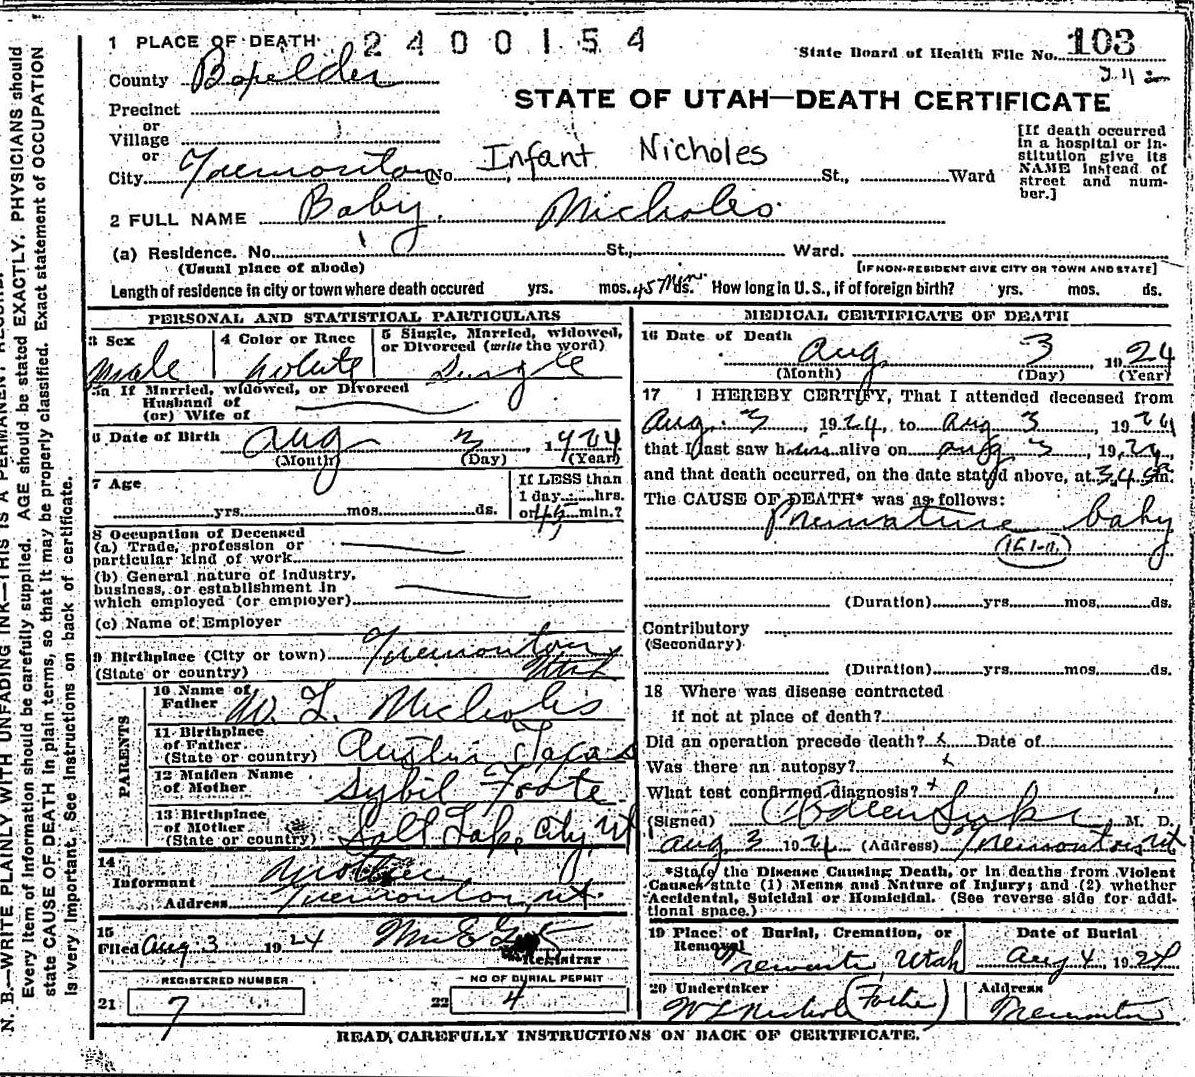 N. B.—WRITE PLAINLY WITH UNFADING INK—THIS IS A PERMANENT RECORD.
Every item of information should be carefully supplied. AGE should be stated EXACTLY. PHYSICIANS should
state CAUSE OF DEATH in plain terms, so that it may be properly classified. Exact statement of OCCUPATION
is very important. See instructions on back of certificate.
1 PLACE OF DEATH 2400154
State Board of Health File No. 103
County Boxelder
STATE OF UTAH—DEATH CERTIFICATE
Precinct
or
Village
or
City Tremonton No. Infant Nicholes St., Ward
[If death occurred
in a hospital or in-
stitution give its
NAME instead of
street and num-
ber.]
2 FULL NAME Baby Nicholes
(a) Residence. No. St., Ward.
(Usual place of abode) [IF NON-RESIDENT GIVE CITY OR TOWN AND STATE]
Length of residence in city or town where death occured yrs. mos. 45 Min ds. How long in U. S., if of foreign birth? yrs. mos. ds.
PERSONAL AND STATISTICAL PARTICULARS
3 Sex
Male
4 Color or Race
White
5 Single, Married, widowed,
or Divorced (write the word)
Single
5a If Married, widowed, or Divorced
Husband of
(or) Wife of
6 Date of Birth Aug 3 1924
(Month) (Day) (Year)
7 Age
yrs. mos. ds.
If LESS than
1 day hrs.
or 45 min.?
8 Occupation of Deceased
(a) Trade, profession or
particular kind of work
(b) General nature of Industry,
business, or establishment in
which employed (or employer)
(c) Name of Employer
9 Birthplace (City or town) Tremonton
(State or country) Utah
PARENTS
10 Name of
Father W. L. Nicholes
11 Birthplace
of Father
(State or country) Austin Texas
12 Maiden Name
of Mother Sybil Foote
13 Birthplace
of Mother
(State or country) Salt Lake City, Ut
14
Informant Mother
Address Tremonton, Ut
15
Filed Aug 3 1924
Registrar
REGISTERED NUMBER
21 7
NO OF BURIAL PERMIT
22 4
MEDICAL CERTIFICATE OF DEATH
16 Date of Death
Aug 3 1924
(Month) (Day) (Year)
17 I HEREBY CERTIFY, That I attended deceased from
Aug. 3, 1924, to Aug 3, 1924
that I last saw him alive on Aug 3, 1924,
and that death occurred, on the date stated above, at 3.45 m.
The CAUSE OF DEATH* was as follows:
Premature baby
(Duration) yrs. mos. ds.
Contributory
(Secondary)
(Duration) yrs. mos. ds.
18 Where was disease contracted
if not at place of death?
Did an operation precede death? x Date of
Was there an autopsy? x
What test confirmed diagnosis? x
(Signed) M. D.
Aug 3 1924 (Address) Tremonton, Ut
*State the Disease Causing Death, or in deaths from Violent
Causes state (1) Means and Nature of Injury; and (2) whether
Accidental, Suicidal or Homicidal. (See reverse side for addi-
tional space.)
19 Place of Burial, Cremation, or
Removal
Tremonton, Utah
Date of Burial
Aug 4 1924
20 Undertaker
W L Nichols (Father)
Address
Tremonton
READ CAREFULLY INSTRUCTIONS ON BACK OF CERTIFICATE.